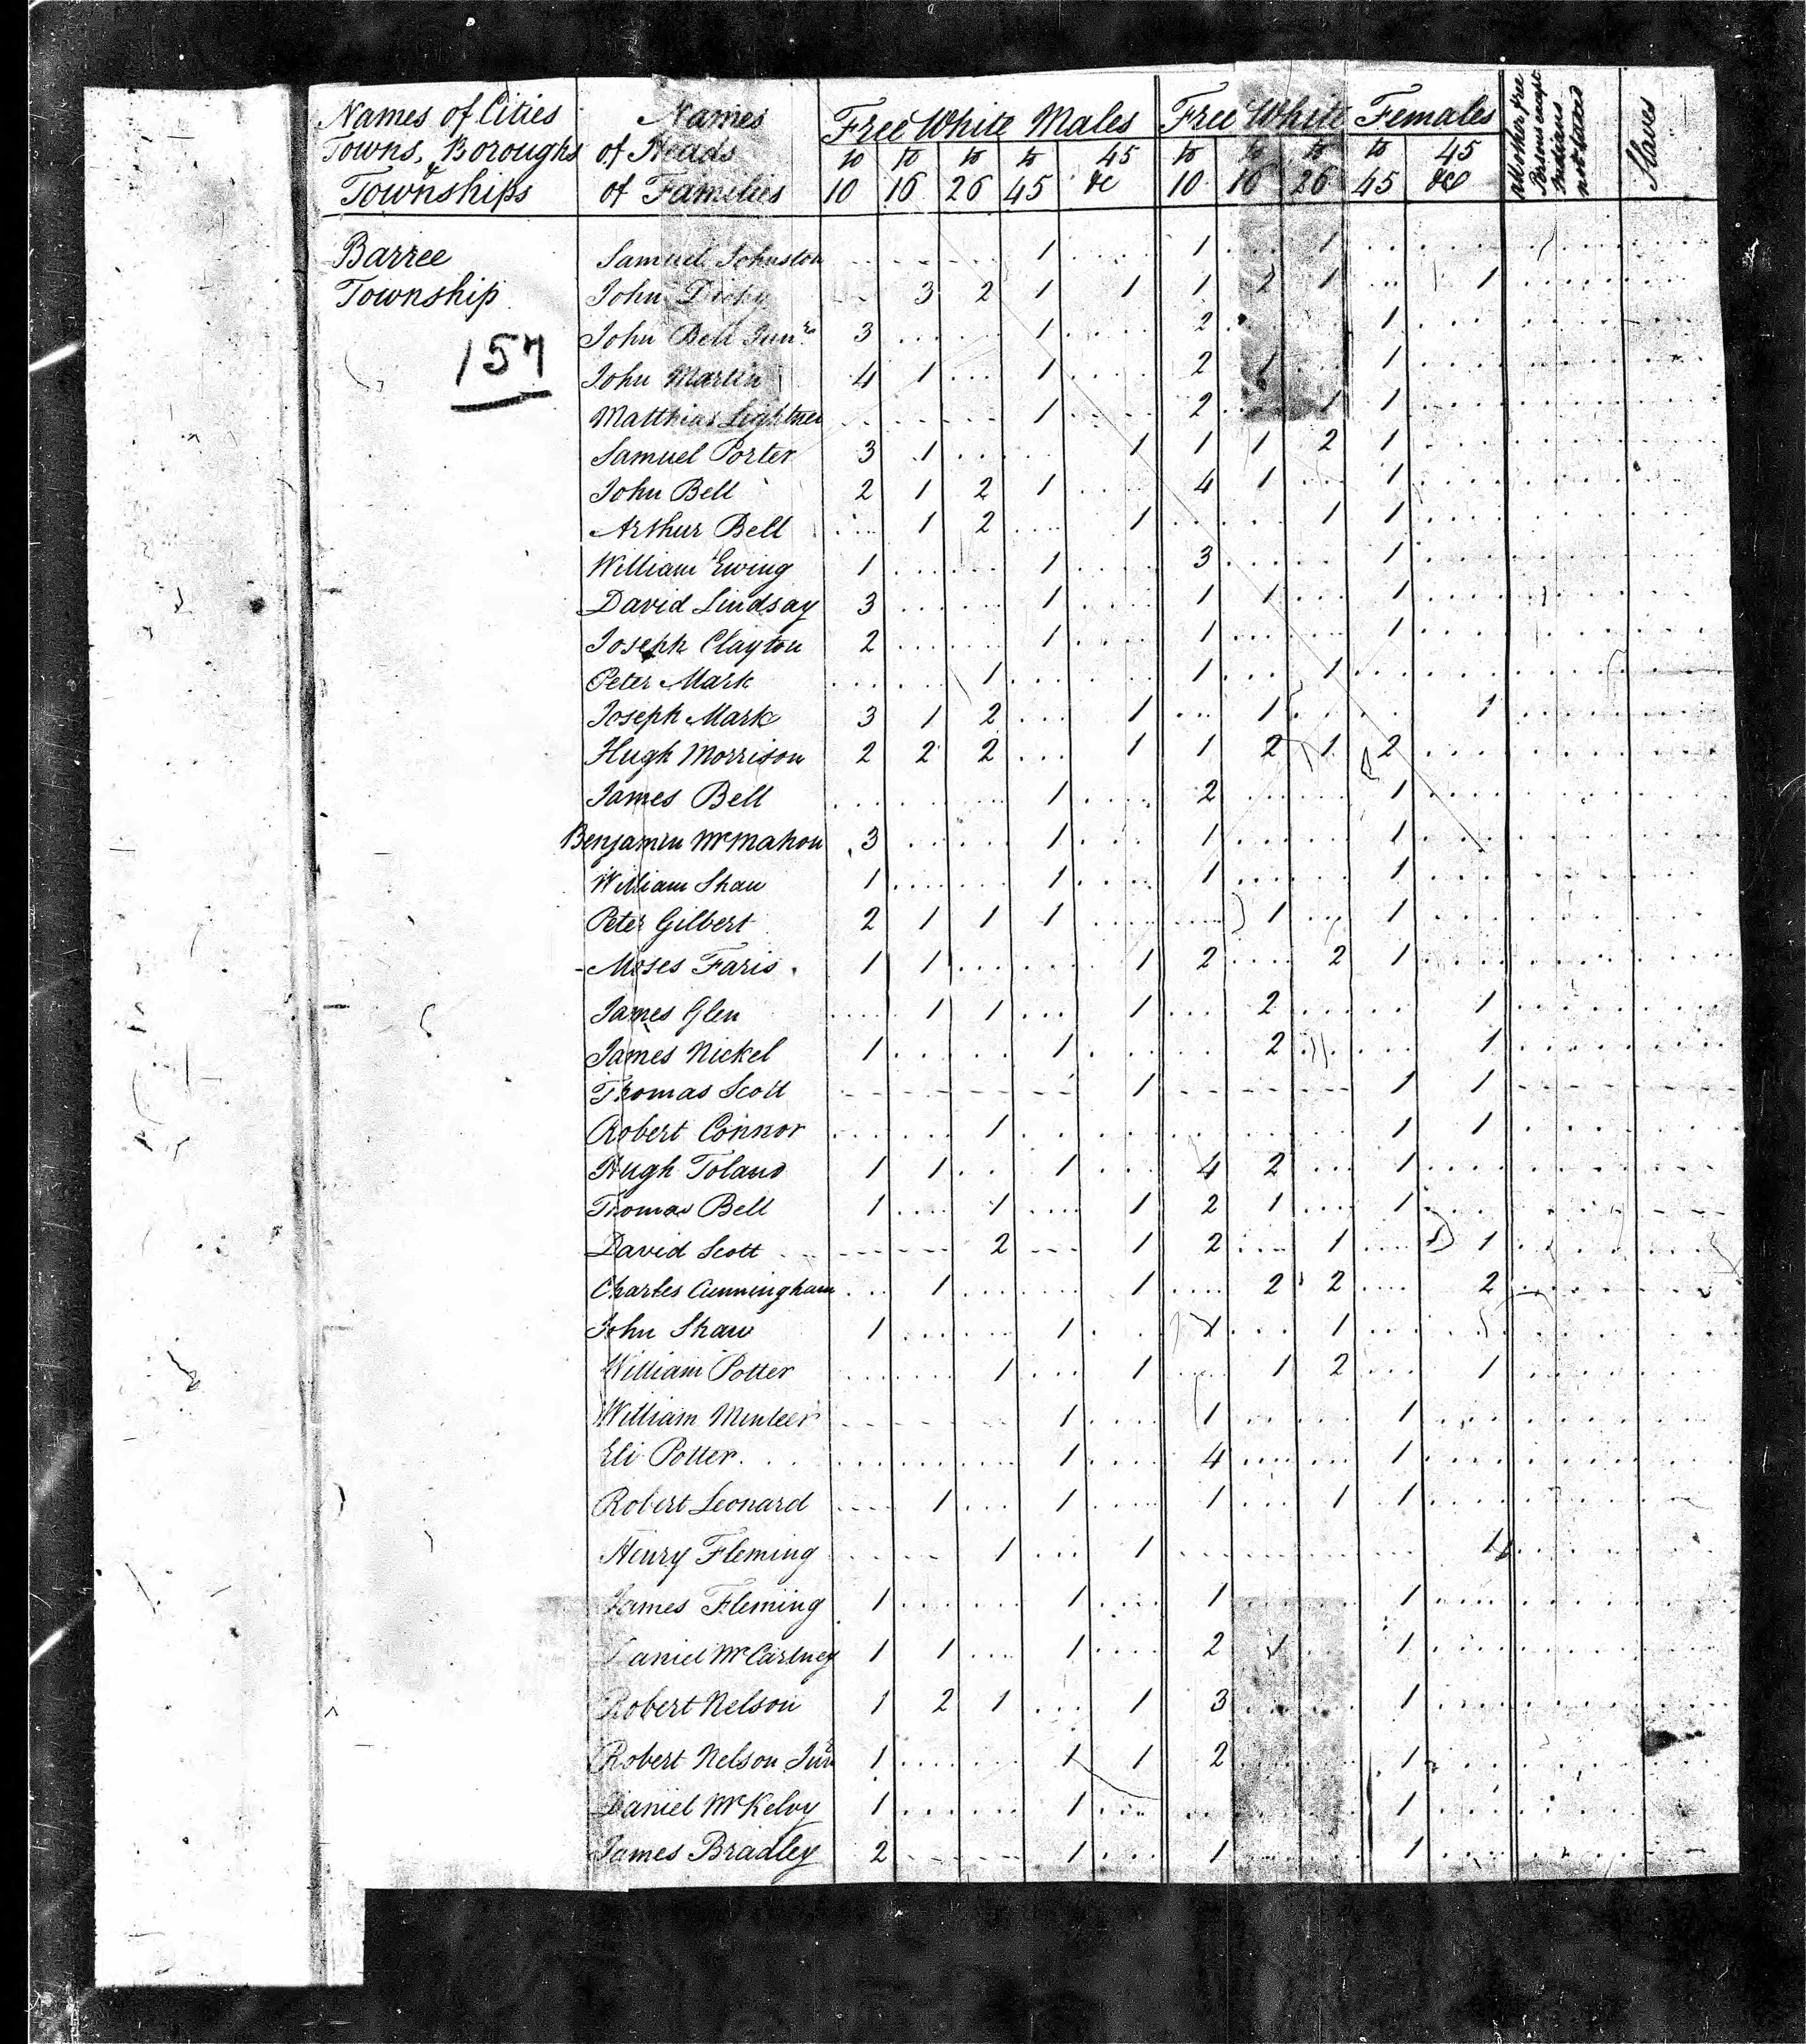 Names of Cities Names Free White Males Free White Females All other free Persons except Indians not taxed Slaves
Towns, Boroughs of Heads to to to to 45 to to to to 45
& Townships of Families 10 16 26 45 &c 10 16 26 45 &c
Barree Samuel Johnston 1 1 1
Township John Dicky 3 2 1 1 1 2 1 1
157
John Bell Junr 3 1 2 1
John Martin 4 1 1 2 1 1
Matthias Lightner 1 2 1 1
Samuel Porter 3 1 1 1 1 2 1
John Bell 2 1 2 1 4 1 1
Arthur Bell 1 2 1 1 1
William Ewing 1 1 3 1
David Lindsay 3 1 1 1 1
Joseph Clayton 2 1 1 1
Peter Mark 1 1 1
Joseph Mark 3 1 2 1 1 1
Hugh Morrison 2 2 2 1 1 2 1 2
James Bell 1 2 1
Benjamin McMahon 3 1 1 1
William Shaw 1 1 1 1
Peter Gilbert 2 1 1 1 1 1
Moses Faris 1 1 1 2 2 1
James Glen 1 1 1 2 1
James Nickel 1 1 2 1
Thomas Scott 1 1 1
Robert Connor 1 1 1
Hugh Toland 1 1 1 4 2 1
Thomas Bell 1 1 1 2 1 1
David Scott 2 1 2 1 1
Charles Cunningham 1 1 2 2 2
John Shaw 1 1 1 1
William Potter 1 1 1 2 1
William Minteer 1 1 1
Eli Potter 1 4 1
Robert Leonard 1 1 1 1 1
Henry Fleming 1 1 1
James Fleming 1 1 1 1
Daniel McCartney 1 1 1 2 1 1
Robert Nelson 1 2 1 1 3 1
Robert Nelson Junr 1 1 1 2 1
Daniel McKelvy 1 1 1
James Bradley 2 1 1 1